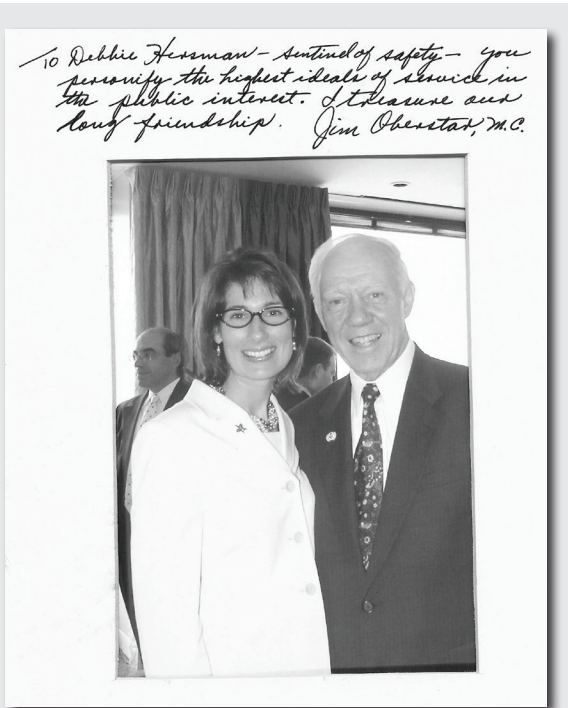 To Debbie Hersman – sentinel of safety – you
personify the highest ideals of service in
the public interest. I treasure our
long friendship. Jim Oberstar, M.C.